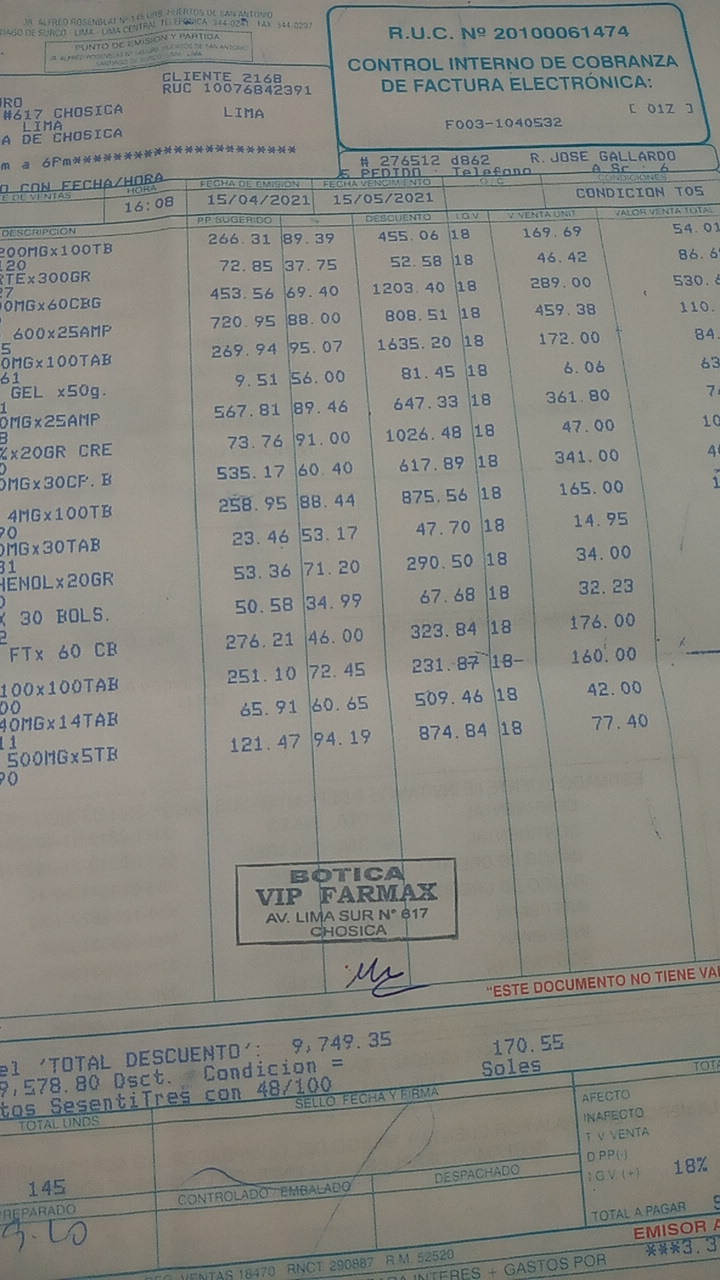 JR. ALFRED ROSENBLAT Nº 145 URB. HUERTOS DE SAN ANTONIO
SANTIAGO DE SURCO - LIMA - LIMA CENTRAL TELEFÓNICA 344-0297 FAX 344-0297
PUNTO DE EMISIÓN Y PARTIDA
R.U.C. Nº 20100061474
CONTROL INTERNO DE COBRANZA
DE FACTURA ELECTRÓNICA:
[ 01Z ]
F003-1040532
CLIENTE 216B
RUC 10076842391
#617 CHOSICA LIMA
LIMA
A DE CHOSICA
m a 6Pm**********************
# 276512 d862 R. JOSE GALLARDO
PEDIDO : Telefono
CON FECHA/HORA
DE VENTAS HORA FECHA DE EMISIÓN FECHA VENCIMIENTO O/C CONDICIONES
16:08 15/04/2021 15/05/2021 CONDICION T05
DESCRIPCION P.P. SUGERIDO % DESCUENTO I.G.V. V. VENTA UNIT. VALOR VENTA TOTAL
200MGx100TB 266.31 89.39 455.06 18 169.69 54.01
120
x300GR 72.85 37.75 52.58 18 46.42 86.6
27
0MGx60CBG 453.56 69.40 1203.40 18 289.00 530.6
600x25AMP 720.95 88.00 808.51 18 459.38 110.
5
0MGx100TAB 269.94 95.07 1635.20 18 172.00 84.
61
GEL x50g. 9.51 56.00 81.45 18 6.06 63
1
0MGx25AMP 567.81 89.46 647.33 18 361.80
B
%x20GR CRE 73.76 91.00 1026.48 18 47.00 10
0
0MGx30CP.B 535.17 60.40 617.89 18 341.00
4MGx100TB 258.95 88.44 875.56 18 165.00
90
0MGx30TAB 23.46 53.17 47.70 18 14.95
31
HENOLx20GR 53.36 71.20 290.50 18 34.00
0
X 30 BOLS. 50.58 34.99 67.68 18 32.23
2
FTx 60 CB 276.21 46.00 323.84 18 176.00
100x100TAB 251.10 72.45 231.87 18 160.00
00
40MGx14TAB 65.91 60.65 509.46 18 42.00
11
500MGx5TB 121.47 94.19 874.84 18 77.40
90
BOTICA
VIP FARMAX
AV. LIMA SUR Nº 617
CHOSICA
"ESTE DOCUMENTO NO TIENE VA
el 'TOTAL DESCUENTO': 9,749.35 170.55
9,578.80 Dsct. Condicion = Soles
tos SesentiTres con 48/100
TOTAL UNDS SELLO, FECHA Y FIRMA TOT
AFECTO
INAFECTO
T.V. VENTA
D.PP(-)
I.G.V. (+) 18%
145 CONTROLADO EMBALADO DESPACHADO
PREPARADO
TOTAL A PAGAR
EMISOR A
***3.3
REG. VENTAS 18470 RNCT 290887 R.M. 52520
INTERES + GASTOS POR